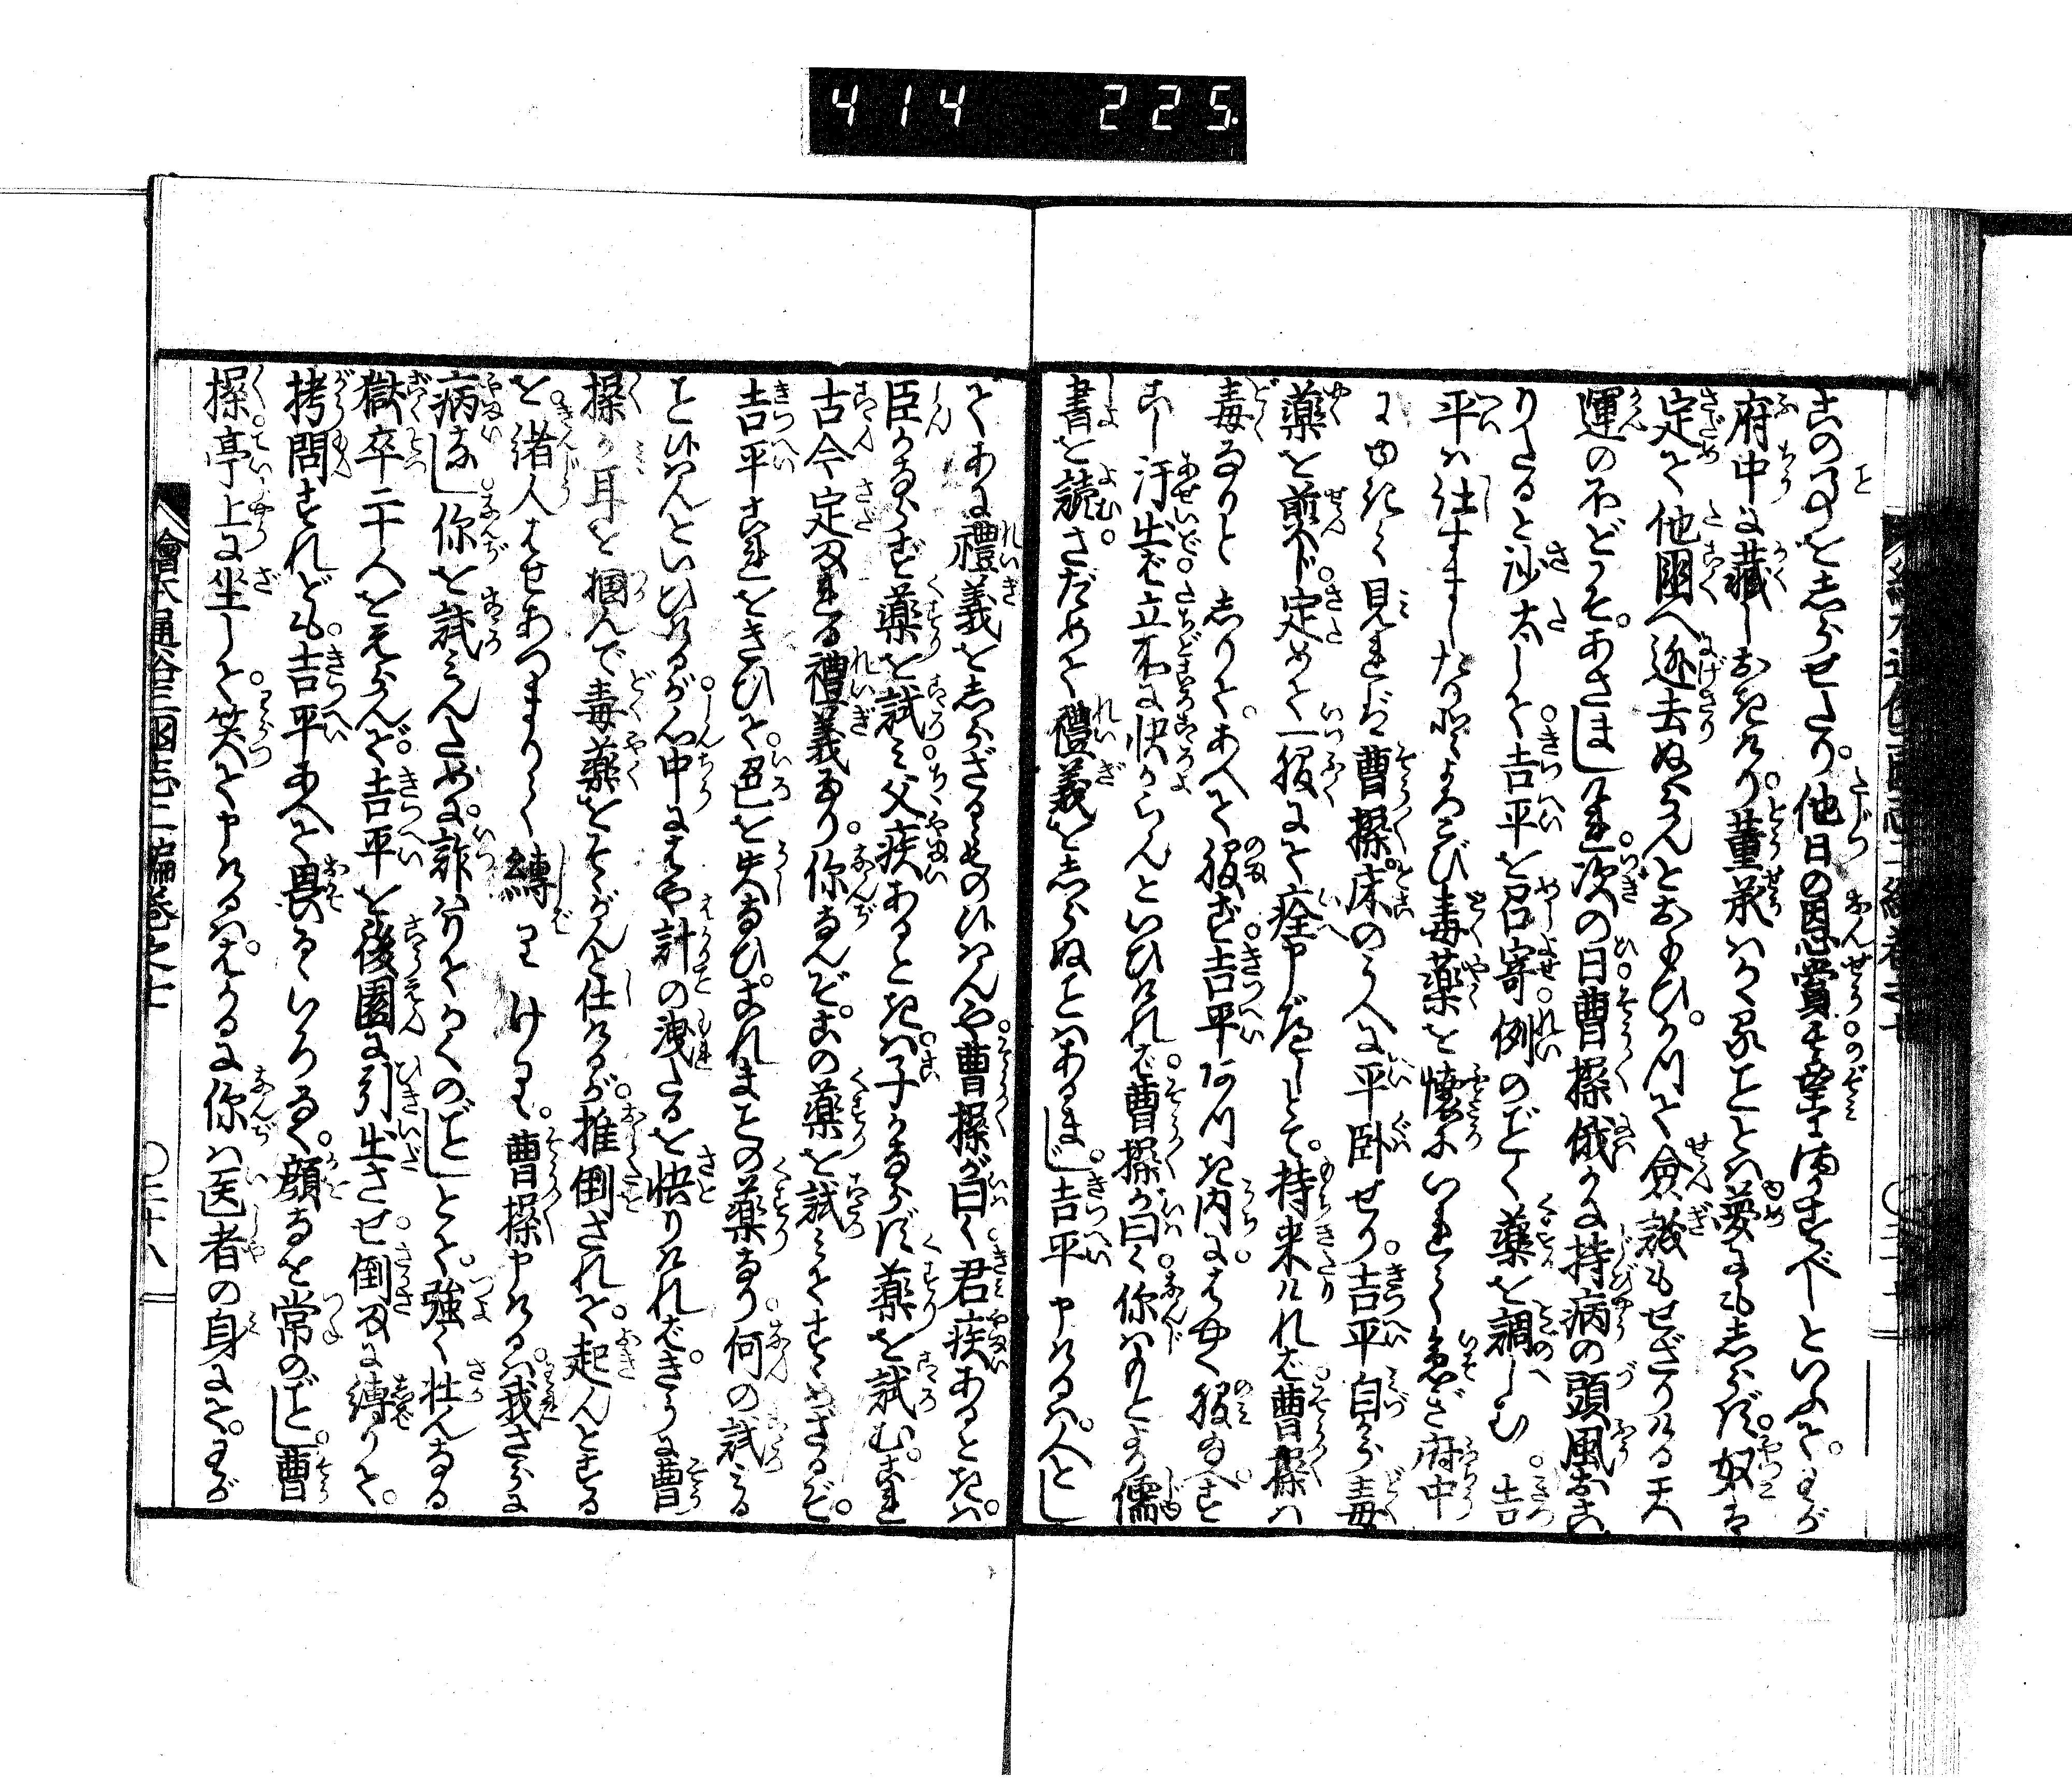 414 225
この事をしらせたり。他日の恩賞は望に満すべしといふて。わが
府中に蔵しおきけり。董承はかくることとは夢にもしらず。奴は
定て他国へ逃去ぬらんとおもひ。かつて僉議もせざりける天
運のほどこそあさましけれ。次の日曹操俄に持病の頭風おこ
りたると沙汰して吉平を召寄例のごとく薬を調しむ。吉
平は仕すましたりとよろこび毒薬を懐にいれて急ぎ府中
にゆきて見れば曹操床のうへに平臥せり。吉平自から毒
薬を煎じ。定めて一服にて痊申べしとて。持来れば曹操は
毒なりとしりてあへて服ず吉平あつき内にはやく服給へ。す
こし汗出ば立本に快からんといひければ。曹操が曰く你はもとより儒
書を読。さだめて禮義をしらぬことはあるまじ。吉平申けるは。人とし
てあに禮義をしらざるもの候はんや曹操が曰く君疾あるときは。
臣かならず薬を試み父疾あるときは子かならず薬を試む。これ
古今定まれる禮義なり。你なんぞ。この薬を試みてすゝめざるぞ。
吉平これをきひて。色を失なひ。これまことの薬なり何の試みる
こと候はんといひけるが。心中にはや計の洩たるを快りければ。きうに曹
操が耳を掴んで毒薬をそゝがんと仕けるが。推倒されて。起んとする
を諸人はせあつまりて縛りけり。曹操申けるは。我さらに
病なし。你を試みんために。詐りてかくのごとしとて。強く壮んなる
獄卒二十人をえらんで。吉平を後園に引出させ倒まに縛りて。
拷問すれども。吉平あへて畏るゝいろなく。顔ると常のごとし。曹
操亭上に坐して。笑て申けるは。はかるに你は医者の身にて。わが
繪本通俗三國志二編巻之七 〇三十八